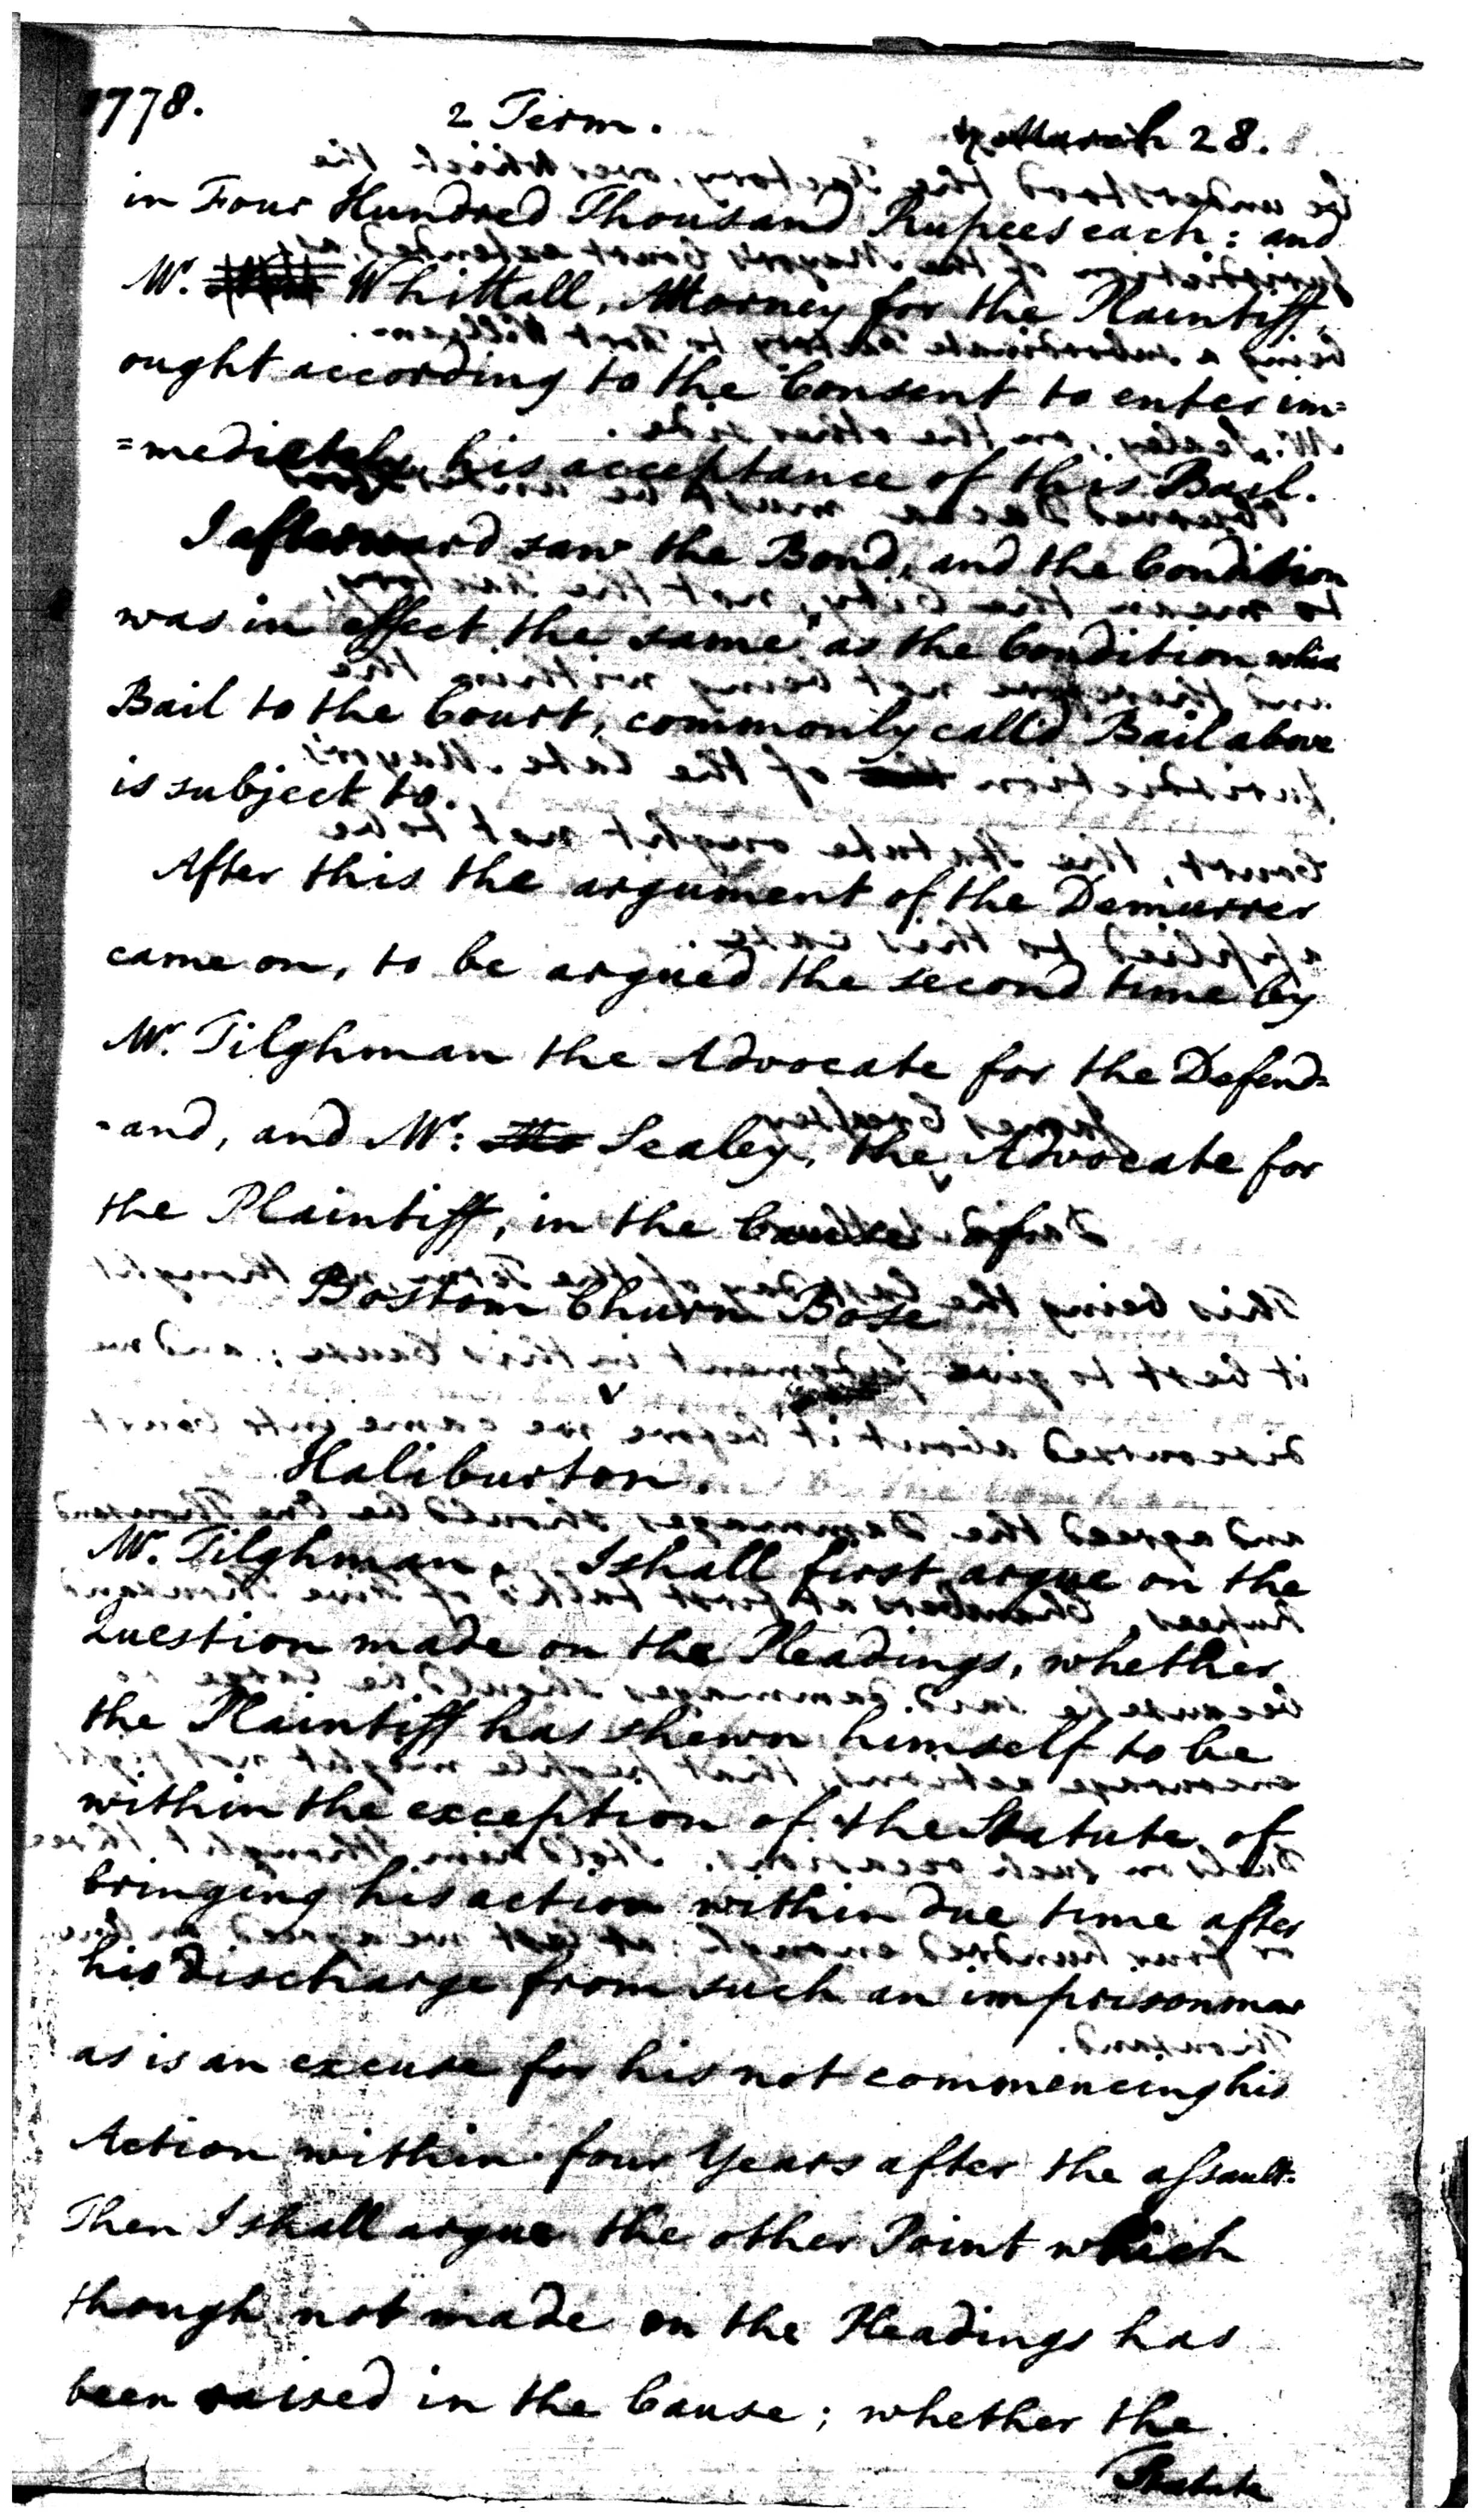 1778.
2 Term.
March 28.
in Four Hundred Thousand Rupees each: and
Mr. Whittall, Attorney for the Plaintiff,
ought according to the Consent to enter im=
=mediately his acceptance of this Bail.
I afterward saw the Bond, and the Condition
was in effect the same as the Condition which
Bail to the Court, commonly call'd Bail above
is subject to.
After this the argument of the Demurrer
came on, to be argued the second time by
Mr. Tilghman the Advocate for the Defend=
-and, and Mr: Sealey, the Advocate for
the Plaintiff, in the Cause of
Bostom Churn Bose
v
Haliburton.
Mr. Tilghman. I shall first argue on the
Question made on the Pleadings, whether
the Plaintiff has shewn himself to be
within the exception of the Statute of
bringing his action within due time after
his discharge from such an imprisonmt
as is an excuse for his not commencing his
Action within four Years after the assault.
Then I shall argue the other Point which
though not made on the Pleadings has
been raised in the Cause; whether the
Statute